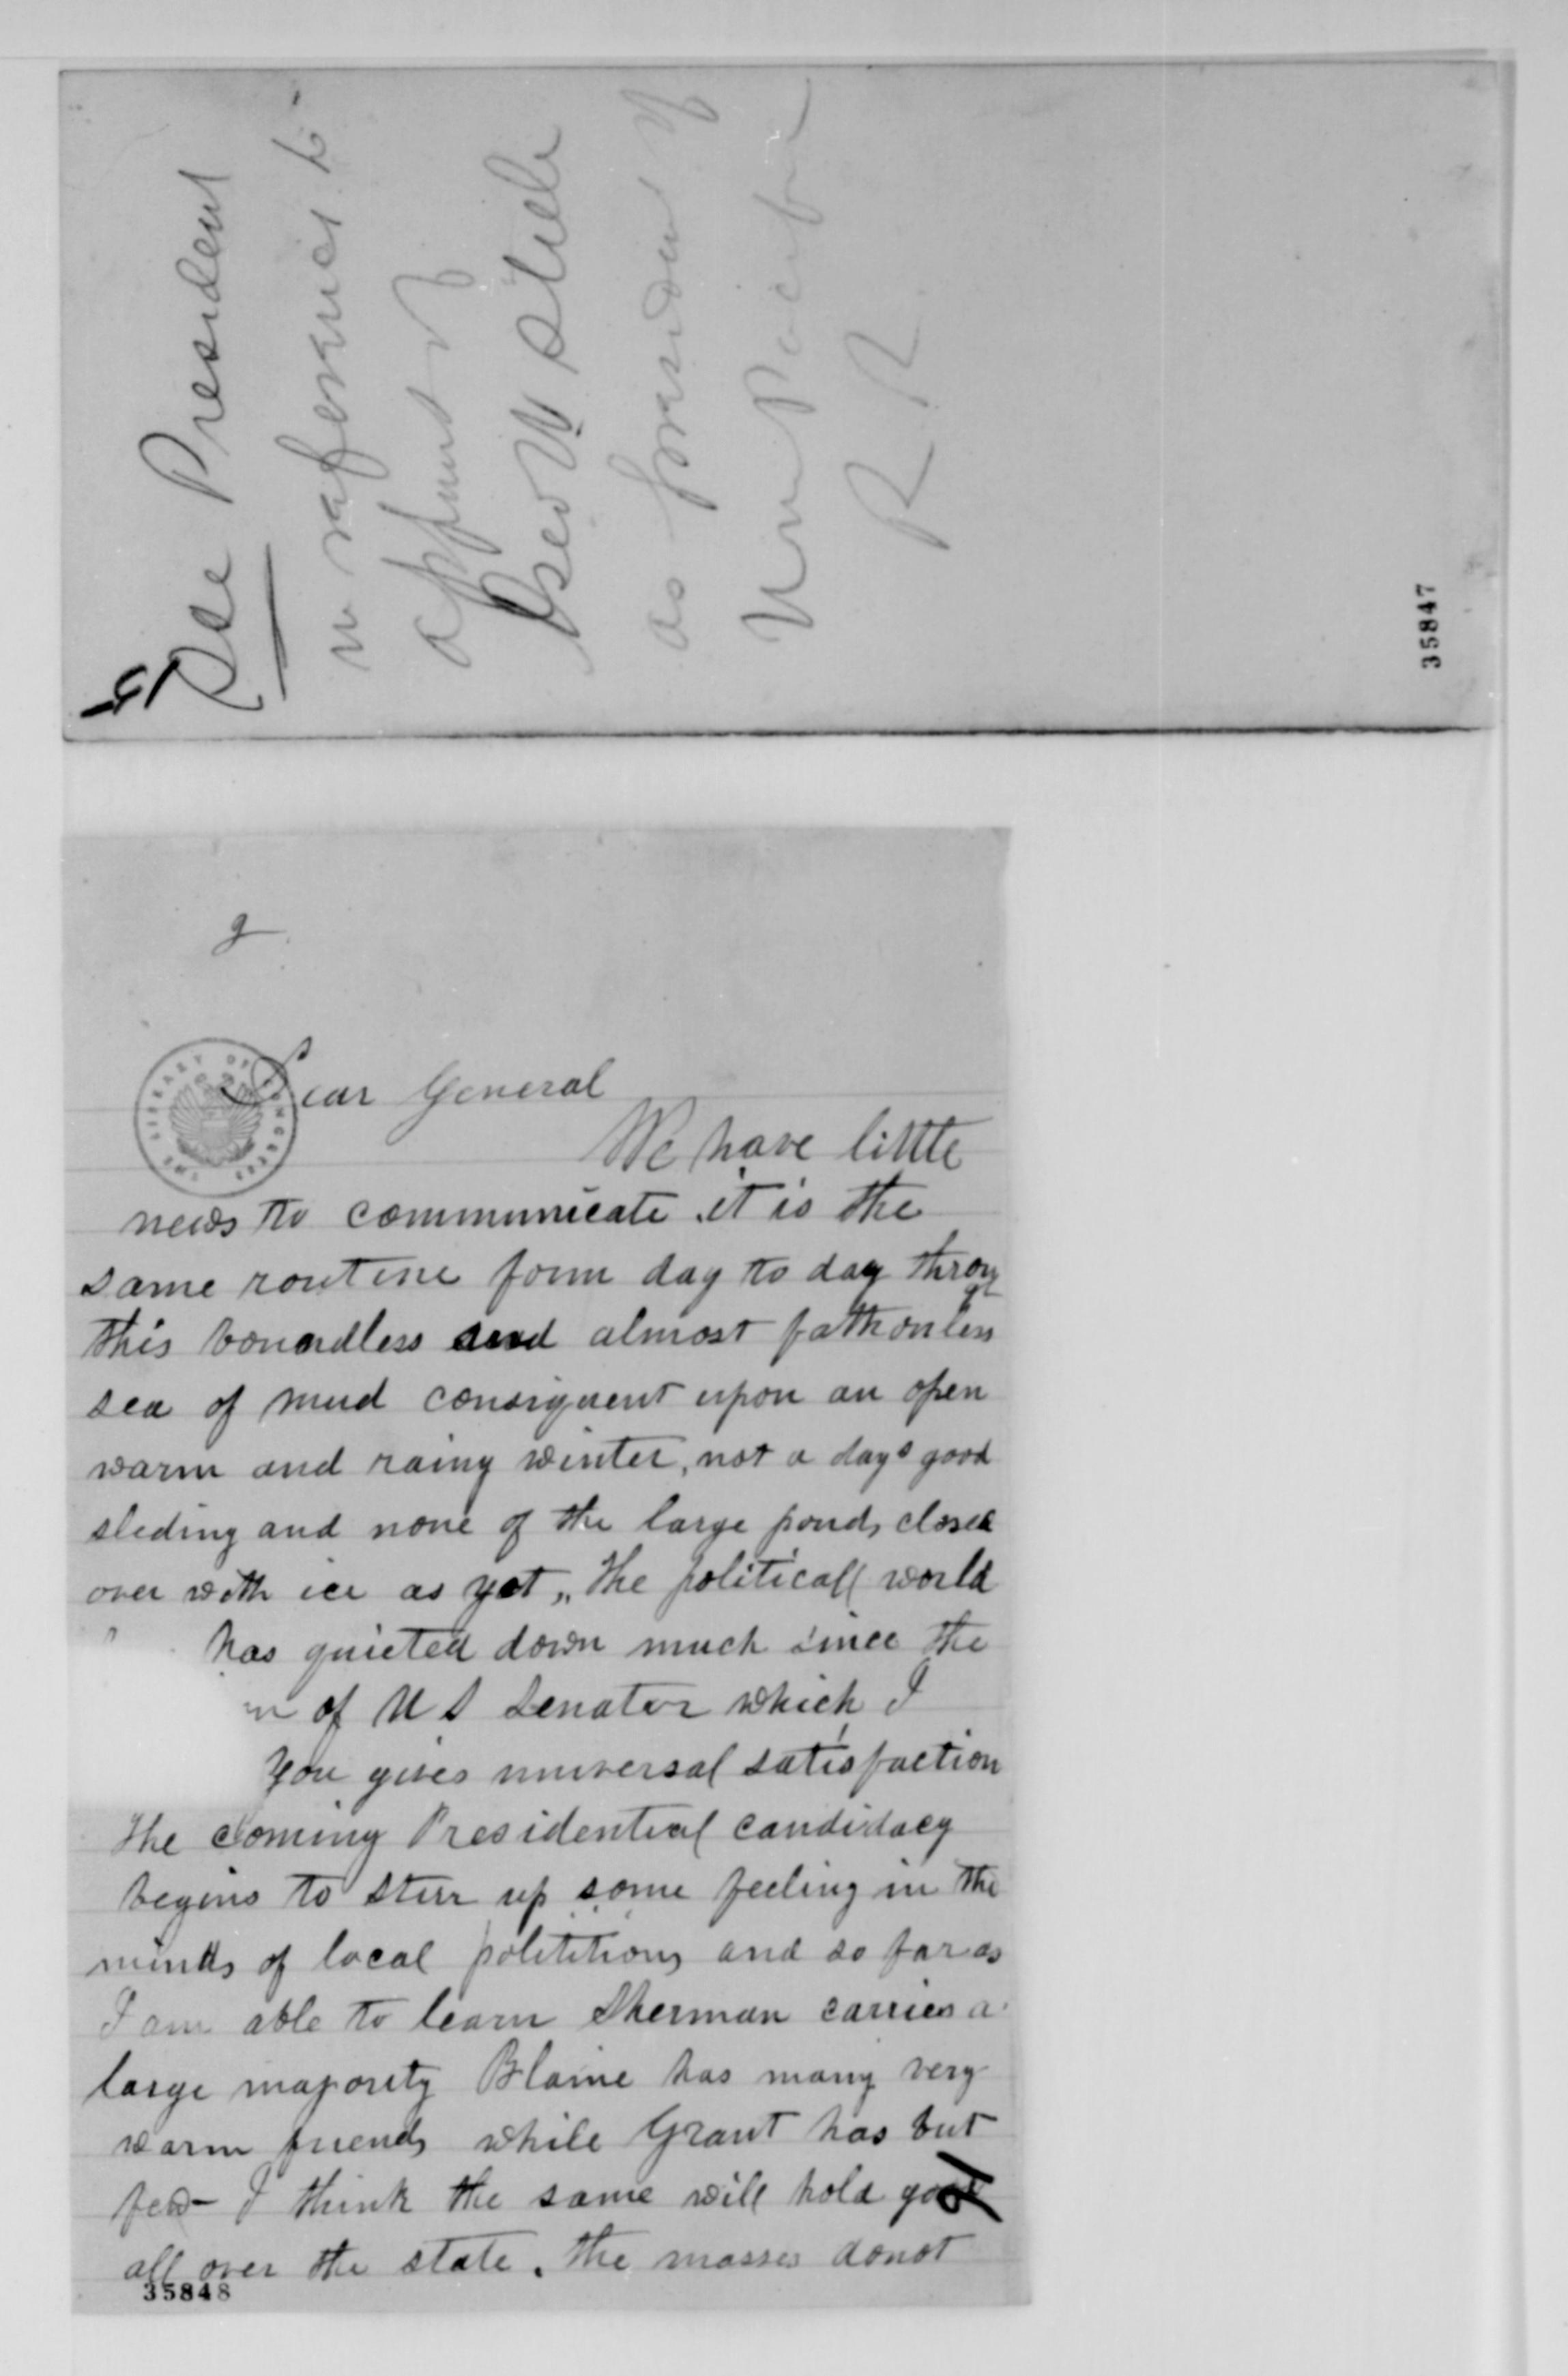 See President
in reference to
appmnt of
Geo W Steele
as president of
Un Pacific
R R
35847
2
THE LIBRARY OF CONGRESS
Dear General
We have little
news to communicate it is the
same routine form day to day throug
h
this boundless and almost fathonless
sea of mud consiquent upon an open
warm and rainy winter, not a days good
sleding and none of the large ponds closed
over with ice as yet,, the politicall world
has quieted down much since the
of U S Senator which I
you gives universal satisfaction
the coming Presidential candidacy
begins to sterr up some feeling in the
minds of local polititions and so far as
I am able to learn Sherman carries a
large majority Blaine has many very
warm friends while Grant has but
few - I think the same will hold good
all over the state. the masses donot
35848